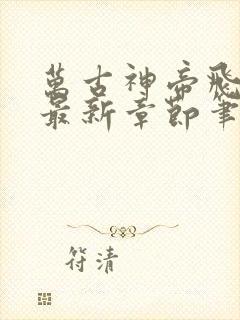 萬古神帝飛
最新章節筆
符清